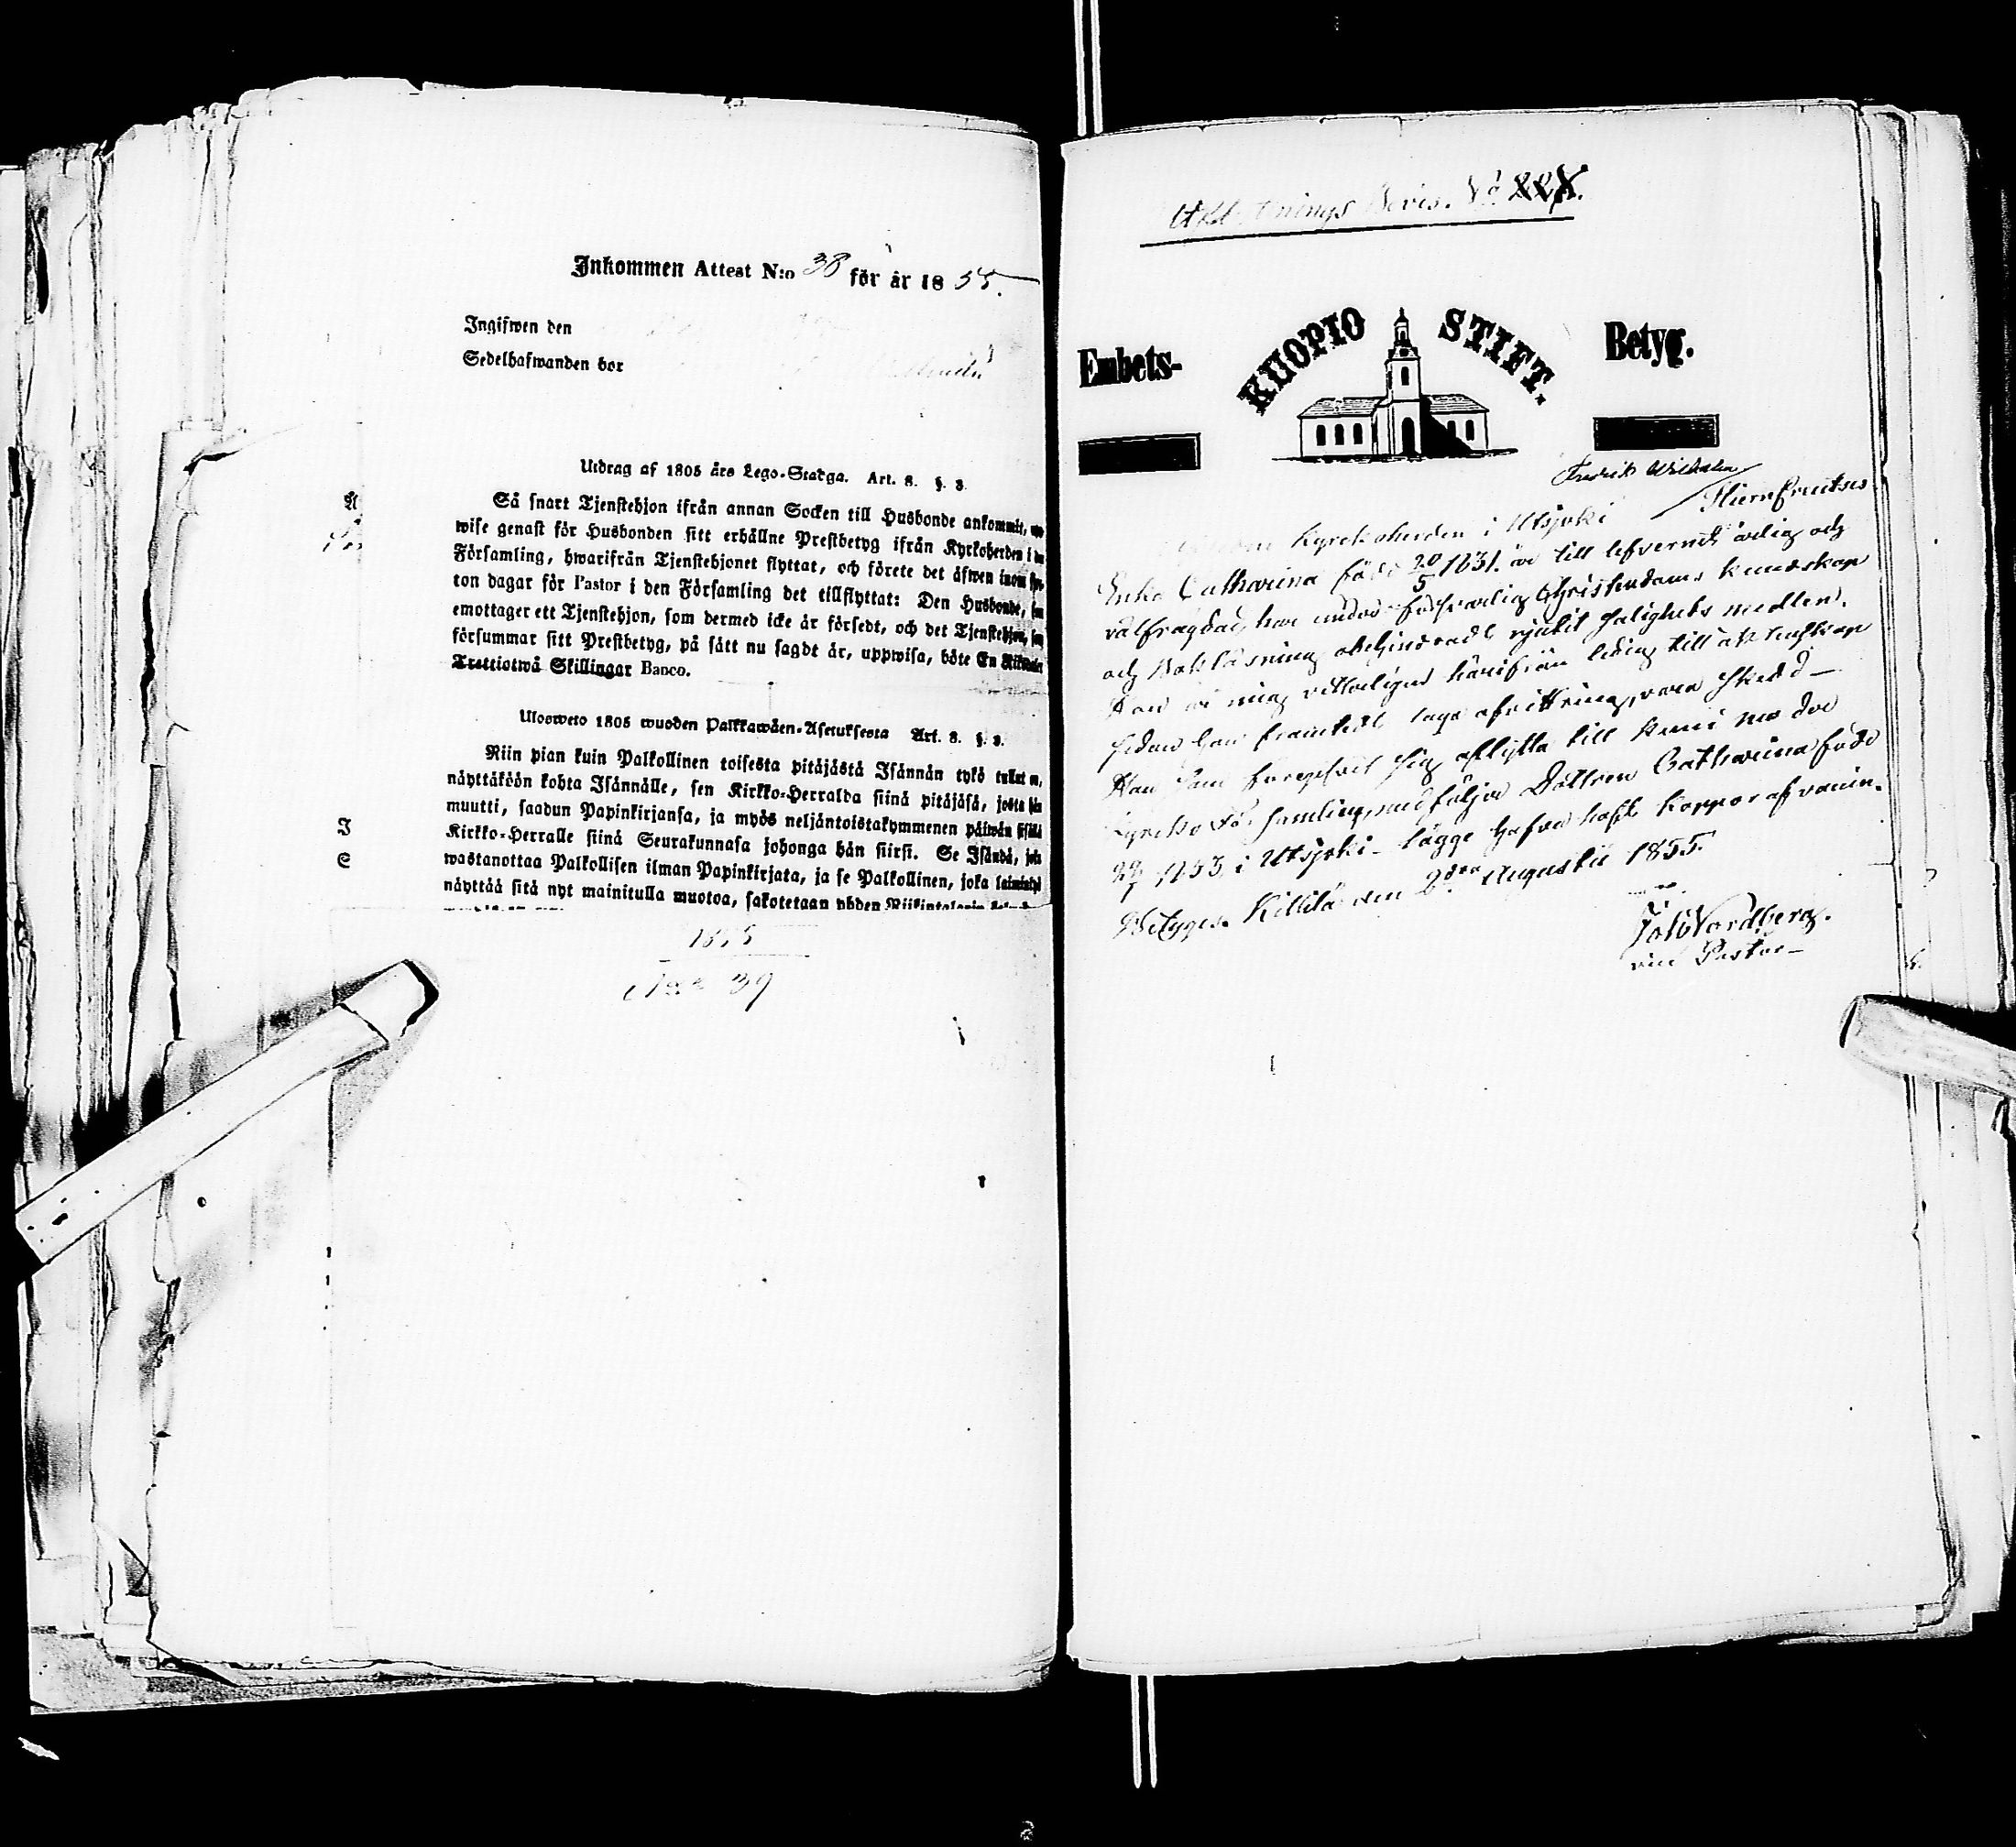 Inkommen Attest N:o 38 för år 1855.
Ingifwen den
Sedelhafwanden bor
Utdrag af 1805 års Lego-Stadga. Art. 8. §. 3.
Så snart Tjenstehjon ifrån annan Socken till Husbonde ankommit,
wise genast för Husbonden sitt erhållne Prestbetyg ifrån Kyrkoherden i
Församling, hwarifrån Tjenstehjonet flyttat, och förete det äfwen inom
ton dagar för Pastor i den Församling det tillflyttat: Den Husbonde,
emottager ett Tjenstehjon, som dermed icke är försedt, och det Tjenstehjon,
försummar sitt Prestbetyg, på sätt nu sagdt är, uppwisa, böte En Riksdaler
Trettiotwå Skillingar Banco.
Ulosweto 1805 wuoden Palkkawäen-Asetuksesta Art. 8. §. 3.
Niin pian kuin Palkollinen toisesta pitäjästä Isännän tykö tullut on,
näyttäköön kohta Isännälle, sen Kirkko-Herralda siinä pitäjäsä, josta hän
muutti, saadun Papinkirjansa, ja myös neljäntoistakymmenen päiwän sisällä
Kirkko-Herralle siinä Seurakunnasa johonga hän siirsi. Se Isändä, joka
wastanottaa Palkollisen ilman Papinkirjata, ja se Palkollinen, joka laiminlyö
näyttää sitä nyt mainitulla muotoa, sakotetaan yhden Riikintalerin
1855
39
I
S
Bevis. No XXX.
Embets-
KUOPIO STIFT.
Betyg.
Fredrik Wilhelm
Kyrckoherden i Utsjoki Stiernfreutzes
Enka Catharina född 20/5 1831. är till lefvernet ärlig och
välfrägdad, har under försvarlig Christendoms kundskap
och Bokläsning obehindradt njutit salighets medlen.
Kan vi mig vitterligen härifrån ledig till äktenskap
sedan hon framtedt laga afvittring vara skedd –
Hon som föregifvit sig aflytta till Kemi moder
Kyrcko Församling, medföljer Dottren Catharina född
1853 i Utsjoki – lägge hafva haft koppor af vaccin.
Betygas. Kittilä den 2den Augustii 1855.
Nordberg.
vice Pastor –